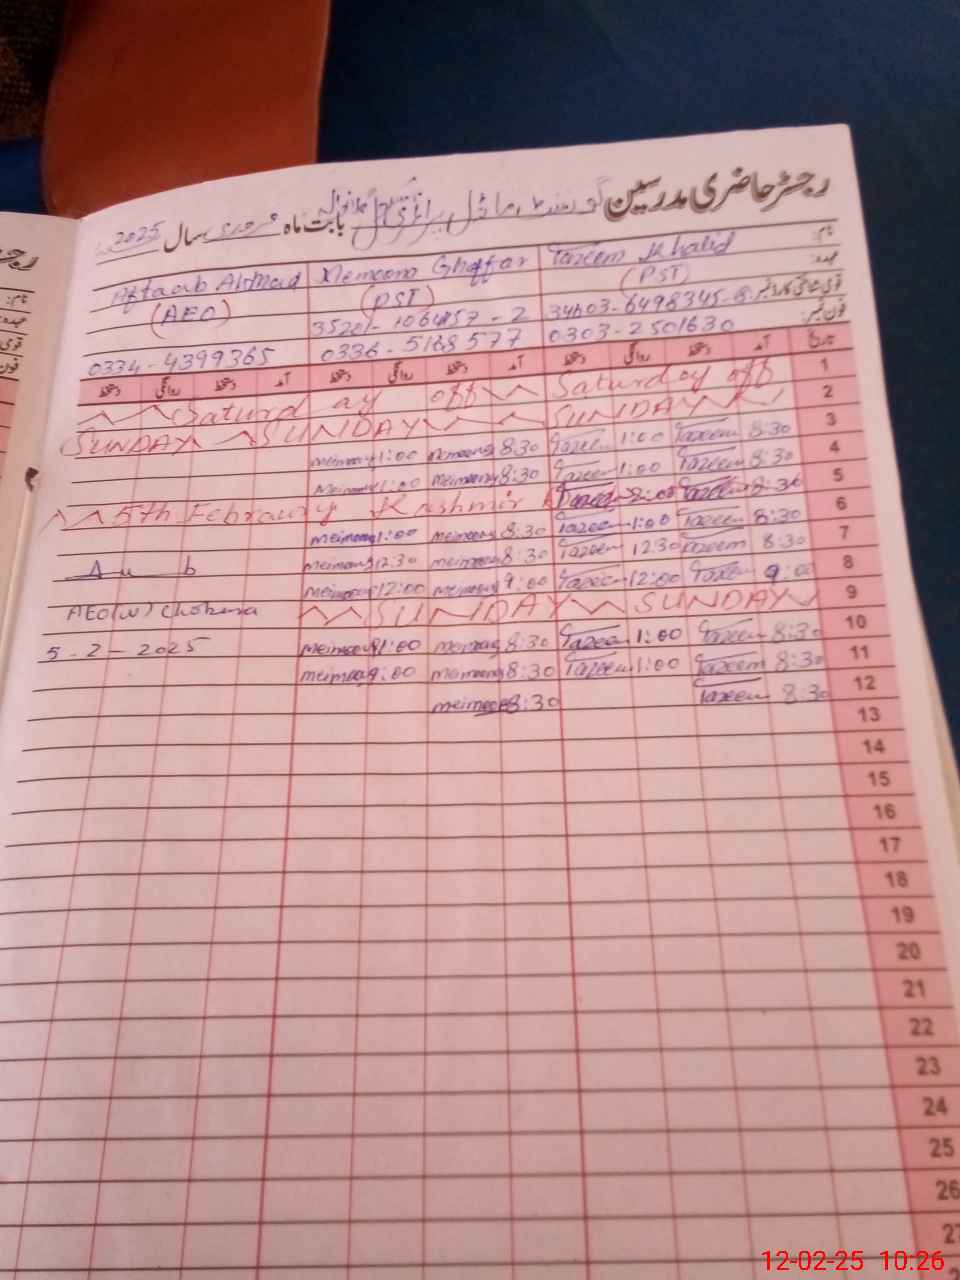 رجسٹر حاضری مدرسین گورنمنٹ ماڈل پرائمری سکول بابت ماہ فروری سال 2025
نام:
Tazeem Khalid Memoona Ghaffar Aftaab Ahmad
عہدہ:
(PST) (PST) (AEO)
قومی شناختی کارڈ نمبر
34603-6498345-8 35201-1064157-2
فون نمبر:
0303-2501630 0336-5168577 0334-4399365
تاریخ آمد دستخط روانگی دستخط آمد دستخط روانگی دستخط آمد دستخط روانگی دستخط
Saturday off Saturday off 1
SUNDAY SUNDAY SUNDAY 2
meimoona 1:00 memoona 8:30 Tazeem 1:00 Tazeem 8:30 3
Meimoona 1:00 meimoona 8:30 Tazeem 1:00 Tazeem 8:30 4
5th February Kashmir Tazeem 8:30 5
meimoona 1:00 meimoona 8:30 Tazeem 1:00 Tazeem 8:30 6
meimoona 12:30 meimoona 8:30 Tazeem 12:30 Tazeem 8:30 7
meimoona 12:00 meimoona 9:00 Tazeem 12:00 Tazeem 9:00 8
AEO(W) SUNDAY SUNDAY 9
5-2-2025 meimoona 1:00 meimoona 8:30 Tazeem 1:00 Tazeem 8:30 10
meimoona 1:00 meimoona 8:30 Tazeem 1:00 Tazeem 8:30 11
meimoona 8:30 Tazeem 8:30 12
13
14
15
16
17
18
19
20
21
22
23
24
25
26
27
12-02-25 10:26